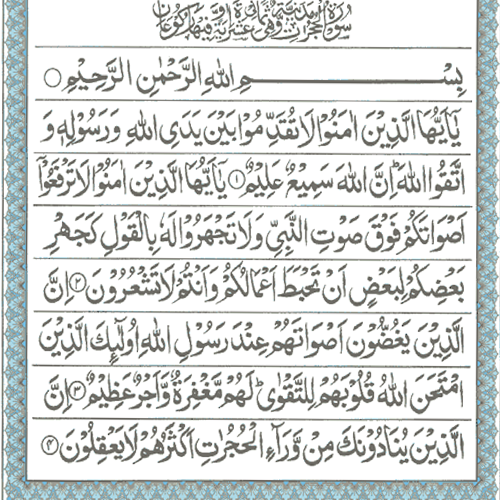 سُوْرَةُ الْحُجُرٰتِ مَدَنِيَّةٌ وَّهِيَ ثَمَانِيَ عَشْرَةَ اٰيَةً وَّفِيْهَا رُكُوْعَانِ
بِسْــــــــــــمِ اللهِ الرَّحْمٰنِ الرَّحِيْمِ ○
يٰۤاَيُّهَا الَّذِيْنَ اٰمَنُوْا لَا تُقَدِّمُوْا بَيْنَ يَدَيِ اللهِ وَرَسُوْلِهٖ وَ
اتَّقُوا اللهَ ؕ اِنَّ اللهَ سَمِيْعٌ عَلِيْمٌ ۱ يٰۤاَيُّهَا الَّذِيْنَ اٰمَنُوْا لَا تَرْفَعُوْۤا
اَصْوَاتَكُمْ فَوْقَ صَوْتِ النَّبِيِّ وَلَا تَجْهَرُوْا لَهٗ بِالْقَوْلِ كَجَهْرِ
بَعْضِكُمْ لِبَعْضٍ اَنْ تَحْبَطَ اَعْمَالُكُمْ وَاَنْتُمْ لَا تَشْعُرُوْنَ ۲ اِنَّ
الَّذِيْنَ يَغُضُّوْنَ اَصْوَاتَهُمْ عِنْدَ رَسُوْلِ اللهِ اُولٰٓئِكَ الَّذِيْنَ
امْتَحَنَ اللهُ قُلُوْبَهُمْ لِلتَّقْوٰى ؕ لَهُمْ مَّغْفِرَةٌ وَّاَجْرٌ عَظِيْمٌ ۳ اِنَّ
الَّذِيْنَ يُنَادُوْنَكَ مِنْ وَّرَآءِ الْحُجُرٰتِ اَكْثَرُهُمْ لَا يَعْقِلُوْنَ ۴